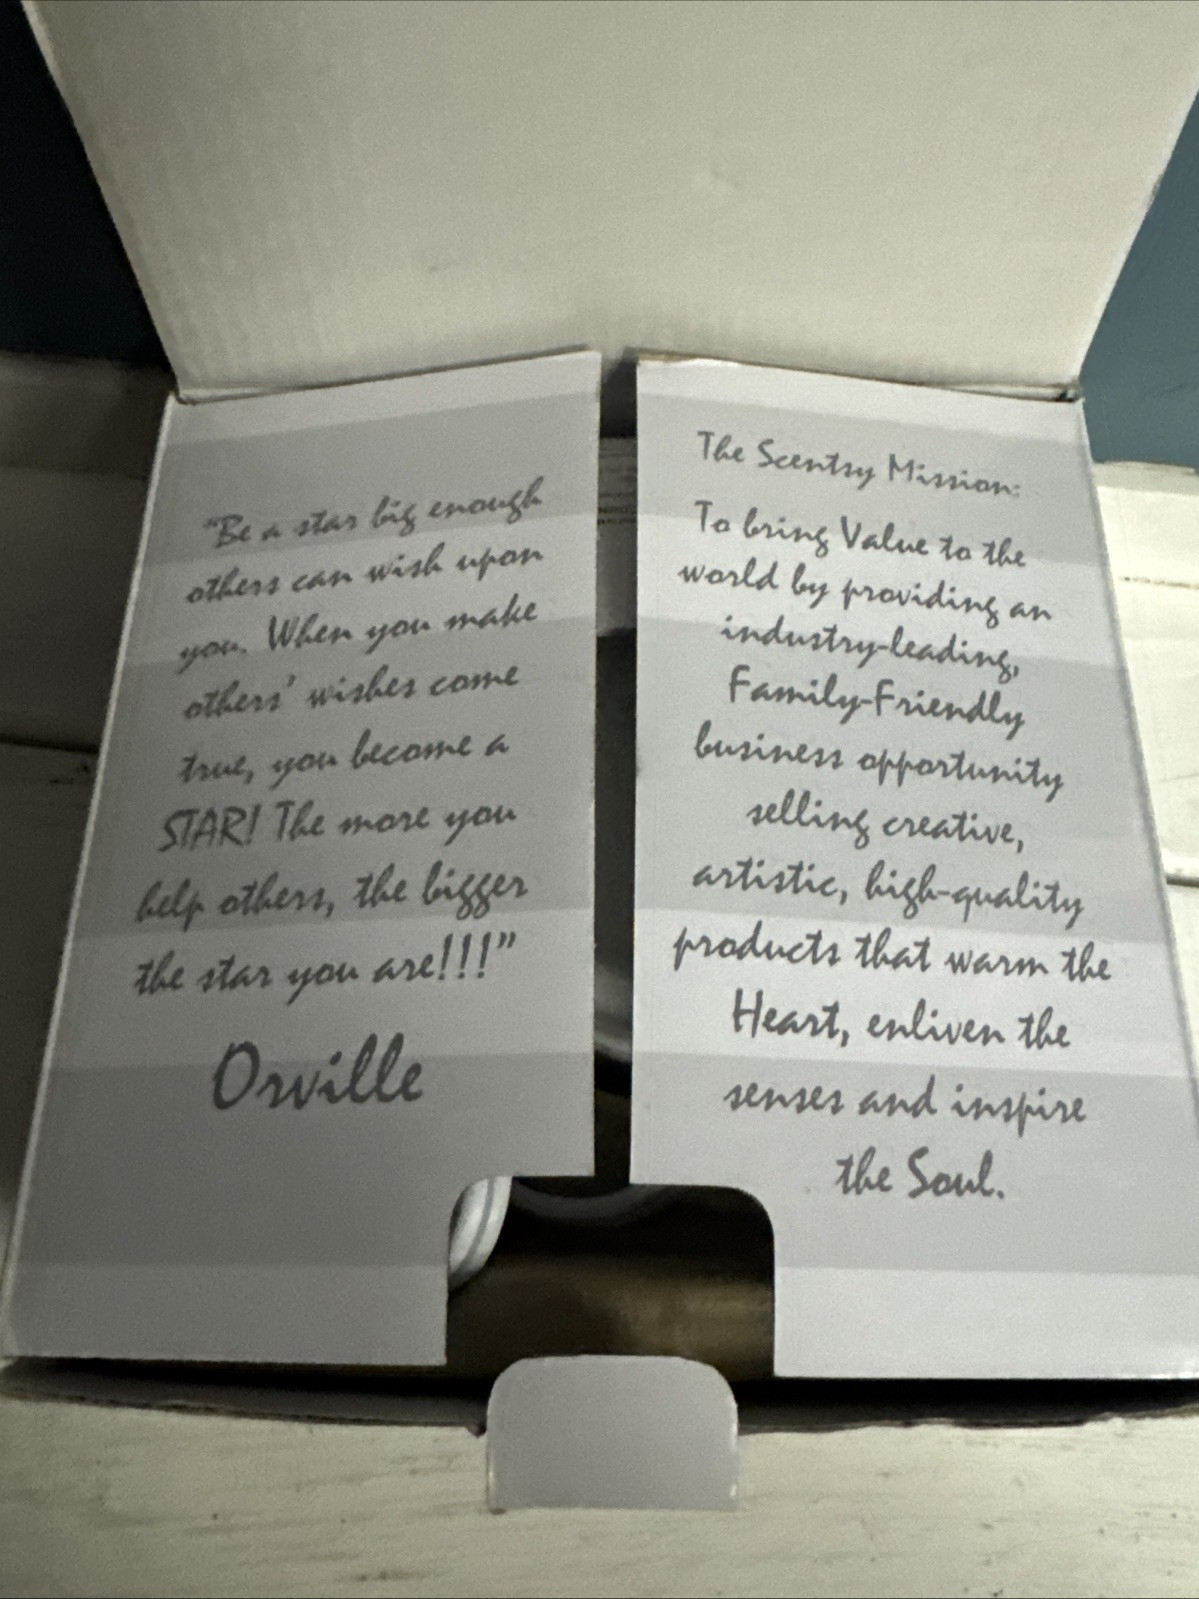 "Be a star big enough
others can wish upon
you. When you make
others' wishes come
true, you become a
STAR! The more you
help others, the bigger
the star you are!!!"
Orville
The Scentsy Mission:
To bring Value to the
world by providing an
industry-leading,
Family-Friendly
business opportunity
selling creative,
artistic, high-quality
products that warm the
Heart, enliven the
senses and inspire
the Soul.